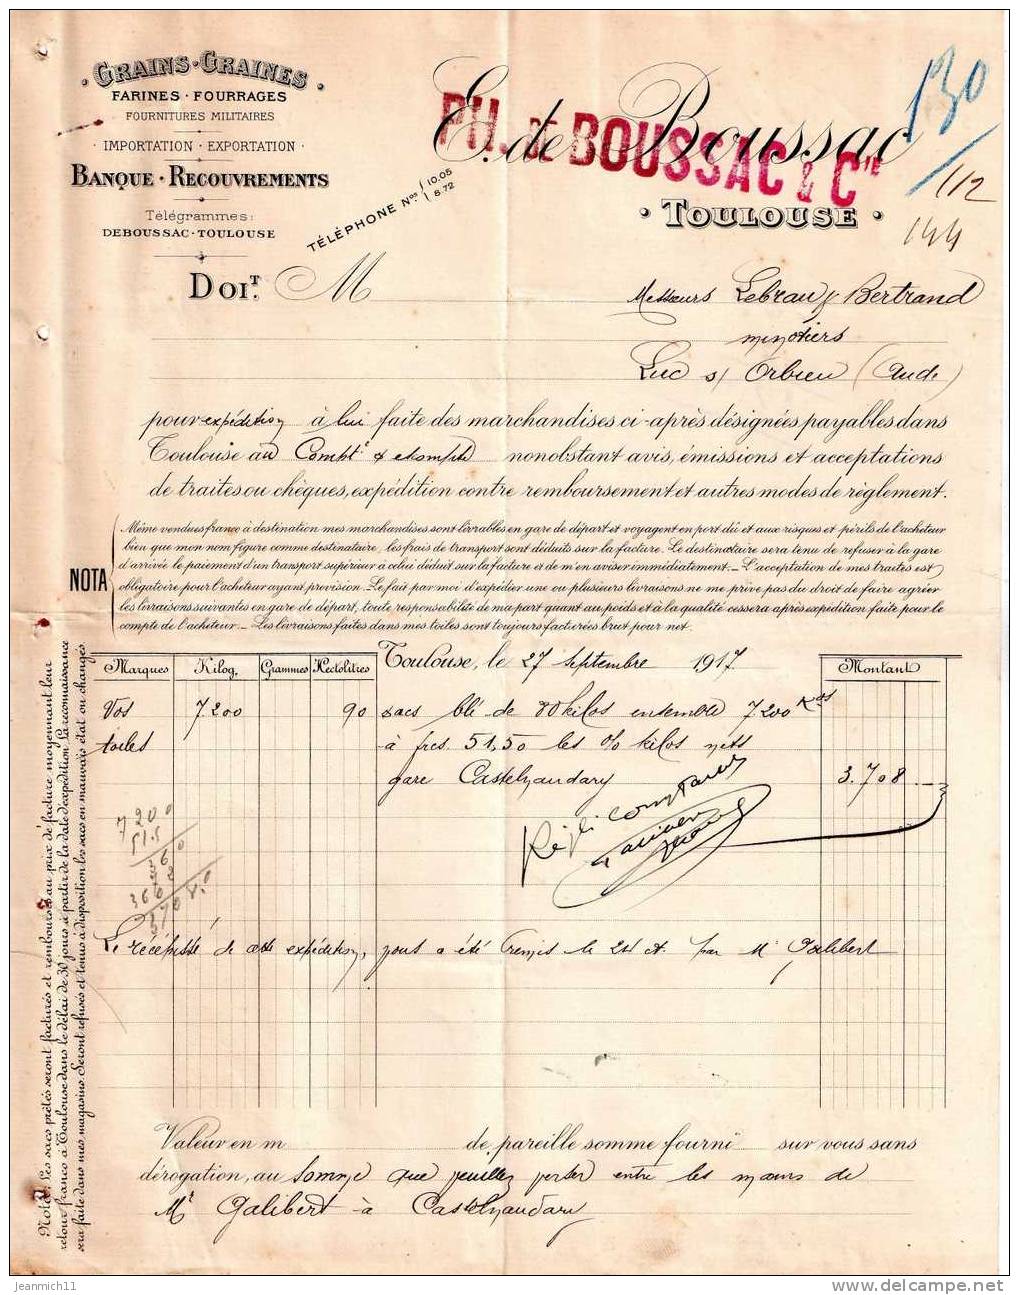 GRAINS-GRAINES
FARINES · FOURRAGES
FOURNITURES MILITAIRES
· IMPORTATION · EXPORTATION ·
BANQUE · RECOUVREMENTS
Télégrammes:
DEBOUSSAC-TOULOUSE
TÉLÉPHONE Nos 10.05
8.72
E. de Boussac
PH. DE BOUSSAC & CIE
· TOULOUSE ·
130
112
144
DOIT. M
Messieurs Lebrau & Bertrand
minotiers
Luc s/ Orbieu (Aude)
pour expédition à lui faite des marchandises ci-après désignées payables dans
Toulouse au Compt. & escompte nonobstant avis, émissions et acceptations
de traites ou chèques, expédition contre remboursement et autres modes de règlement.
NOTA
Même vendues franco à destination mes marchandises sont livrables en gare de départ et voyagent en port dû et aux risques et périls de l'acheteur
bien que mon nom figure comme destinataire, les frais de transport sont déduits sur la facture. Le destinataire sera tenu de refuser à la gare
d'arrivée le paiement d'un transport supérieur à celui déduit sur la facture et de m'en aviser immédiatement. - L'acceptation de mes traites est
obligatoire pour l'acheteur ayant provision. Le fait par moi d'expédier une ou plusieurs livraisons ne me prive pas du droit de faire agréer
les livraisons suivantes en gare de départ, toute responsabilité de ma part quant au poids et à la qualité cessera après expédition faite pour le
compte de l'acheteur. - Les livraisons faites dans mes toiles sont toujours facturées brut pour net.
Toulouse, le 27 Septembre 1917
Marques Kilog. Grammes Hectolitres Montant
Vos 7.200 90 sacs blé de 80 kilos ensemble 7200 Kos
toiles à frcs. 51,50 les % kilos nets
gare Castelnaudary 3.708 . —
7200
51.5
360
72
360
3708.0
Le récépissé de cette expédition, vous a été remis le 24 ct. par Mr Galibert
Valeur en m de pareille somme fourni sur vous sans
dérogation, au Somme que veuillez porter entre les mains de
Mr Galibert à Castelnaudary
Nota: Les sacs prêtés seront facturés et remboursés au prix de facture moyennant leur
retour franco à Toulouse dans le délai de 30 jours à partir de la date d'expédition. La reconnaissance
sera faite dans mes magasins. Seront refusés et tenus à disposition les sacs en mauvais état ou changés
jeanmich11
© delcampe.net